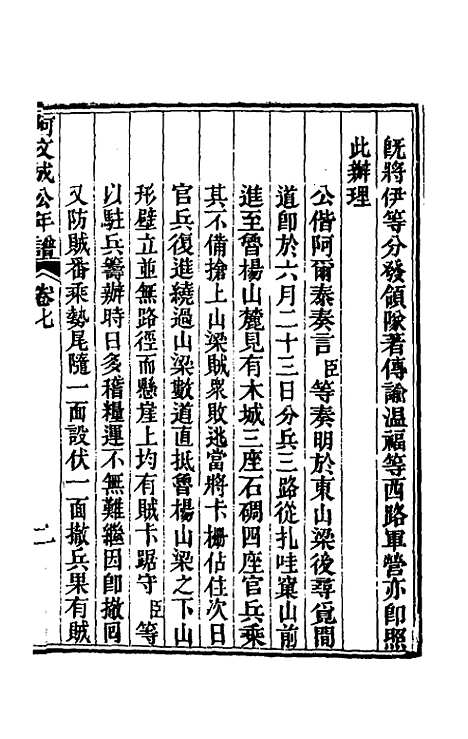 既將伊等分發領隊著傳諭温福等西路軍營亦即照
此辦理
公偕阿爾泰奏言臣等奏明於東山梁後尋覓間
道即於六月二十三日分兵三路從扎哇窠山前
進至魯楊山麓見有木城三座石碉四座官兵乘
其不備搶上山梁賊衆敗逃當將卡柵佔住次日
官兵復進繞過山梁數道直抵魯楊山梁之下山
形壁立並無路徑而懸崖上均有賊卡踞守臣等
以駐兵籌辦時日多稽糧運不無難繼因即撤回
又防賊番乘勢尾隨一面設伏一面撤兵果有賊
阿文成公年譜 卷七 二